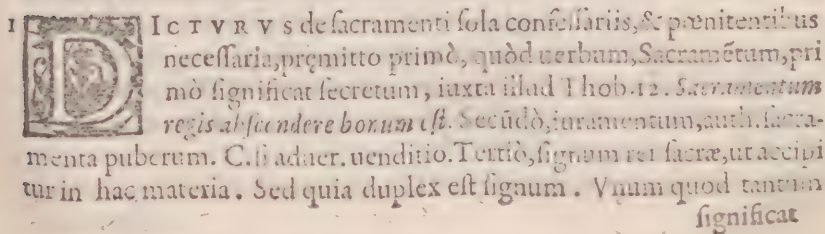 1 DICTVRVS de sacramenti sola confessariis, & pœnitentibus
necessaria, pręmitto primò, quòd uerbum, Sacramẽtum, pri
mò significat secretum, iuxta illud Thob.12. Sacramentum
regis abscondere bonum est. Secũdò, iuramentum, auth. sacra-
menta puberum. C. si aduer. uenditio. Tertiò, signum rei sacræ, ut accipi
tur in hac materia. Sed quia duplex est signum. Vnum quod tantum
significat